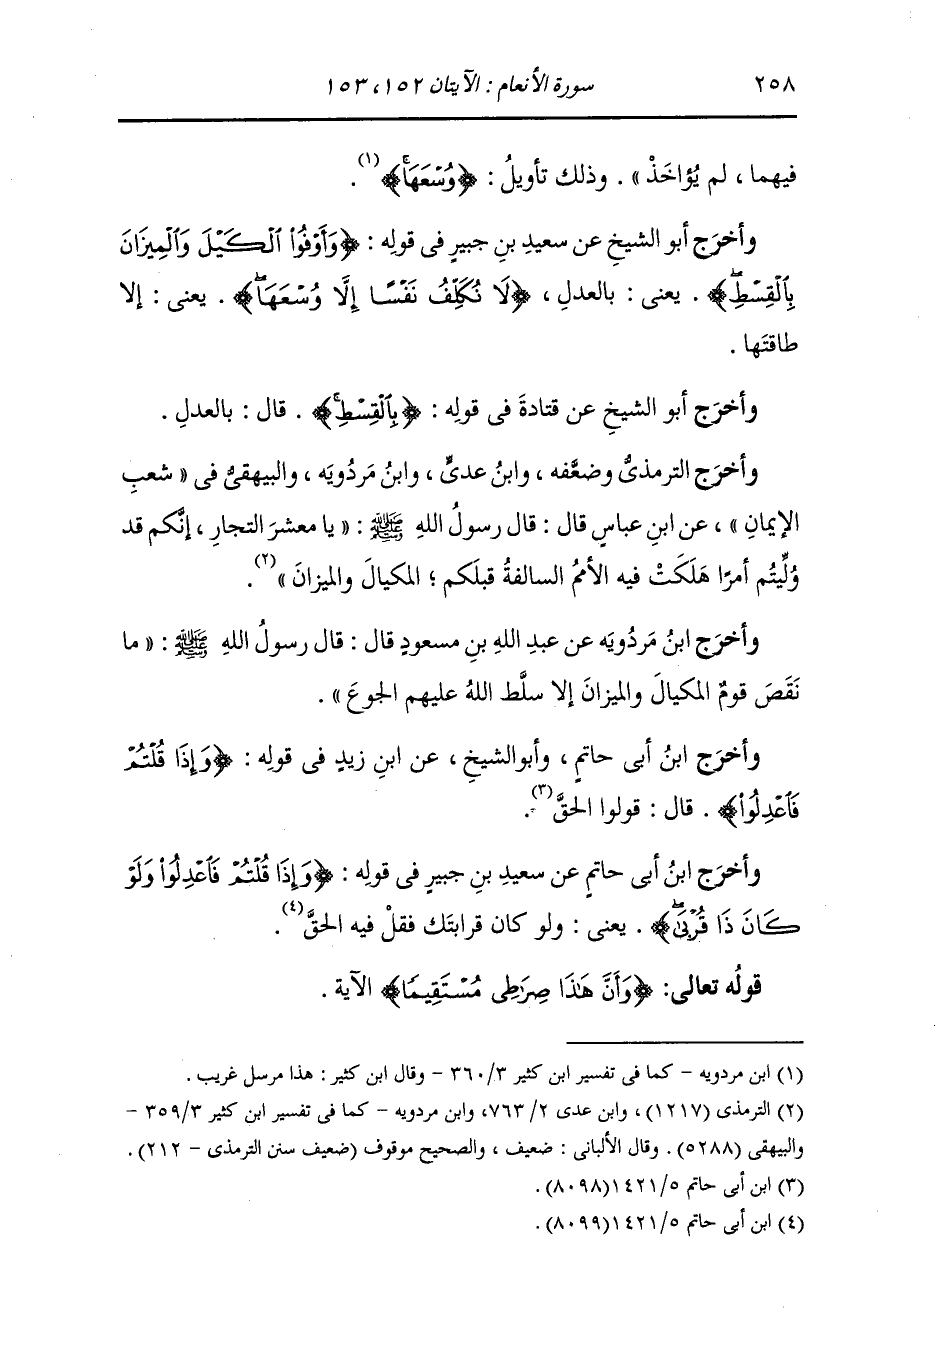 ٢٥٨
سورة الأنعام : الآيتان ١٥٢، ١٥٣
فيهما ، لم يُؤاخَذْ » . وذلك تأويلُ : ﴿وُسْعَهَا﴾(١) .
وأخرَج أبو الشيخِ عن سعيدِ بنِ جبيرٍ فى قولِه : ﴿وَأَوْفُوا۟ ٱلْكَيْلَ وَٱلْمِيزَانَ
بِٱلْقِسْطِۖ﴾ . يعنى : بالعدلِ ، ﴿لَا نُكَلِّفُ نَفْسًا إِلَّا وُسْعَهَاۖ﴾ . يعنى : إلا
طاقتَها .
وأخرَج أبو الشيخِ عن قتادةَ فى قولِه : ﴿بِٱلْقِسْطِۚ﴾ . قال : بالعدلِ .
وأخرَج الترمذىُّ وضعَّفه ، وابنُ عدىٍّ ، وابنُ مَردُويَه ، والبيهقىُّ فى « شعبِ
الإيمانِ » ، عن ابنِ عباسٍ قال : قال رسولُ اللهِ ﷺ : « يا معشرَ التجارِ ، إنَّكم قد
وُلِّيتُم أمرًا هَلَكَتْ فيه الأممُ السالفةُ قبلَكم ؛ المكيالَ والميزانَ »(٢) .
وأخرَج ابنُ مَردُويَه عن عبدِ اللهِ بنِ مسعودٍ قال : قال رسولُ اللهِ ﷺ : « ما
نَقَصَ قومٌ المكيالَ والميزانَ إلا سلَّط اللهُ عليهم الجوعَ » .
وأخرَج ابنُ أبى حاتمٍ ، وأبوالشيخِ ، عن ابنِ زيدٍ فى قولِه : ﴿وَإِذَا قُلْتُمْ
فَٱعْدِلُوا۟﴾ . قال : قولوا الحقَّ(٣) .
وأخرَج ابنُ أبى حاتمٍ عن سعيدِ بنِ جبيرٍ فى قولِه : ﴿وَإِذَا قُلْتُمْ فَٱعْدِلُوا۟ وَلَوْ
كَانَ ذَا قُرْبَىٰۖ﴾ . يعنى : ولو كان قرابتَك فقلْ فيه الحقَّ(٤) .
قولُه تعالى: ﴿وَأَنَّ هَٰذَا صِرَٰطِى مُسْتَقِيمًا﴾ الآية .
(١) ابن مردويه - كما فى تفسير ابن كثير ٣/٣٦٠ - وقال ابن كثير : هذا مرسل غريب .
(٢) الترمذى (١٢١٧) ، وابن عدى ٢/ ٧٦٣، وابن مردويه - كما فى تفسير ابن كثير ٣/ ٣٥٩ -
والبيهقى (٥٢٨٨) . وقال الألبانى : ضعيف ، والصحيح موقوف (ضعيف سنن الترمذى - ٢١٢) .
(٣) ابن أبى حاتم ٥/ ١٤٢١(٨٠٩٨) .
(٤) ابن أبى حاتم ٥/ ١٤٢١(٨٠٩٩) .